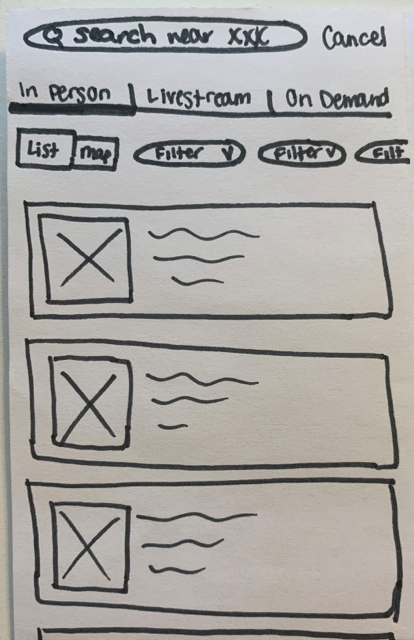 search near xxx Cancel
In Person | Livestream | On Demand
List map Filter Filter Filt